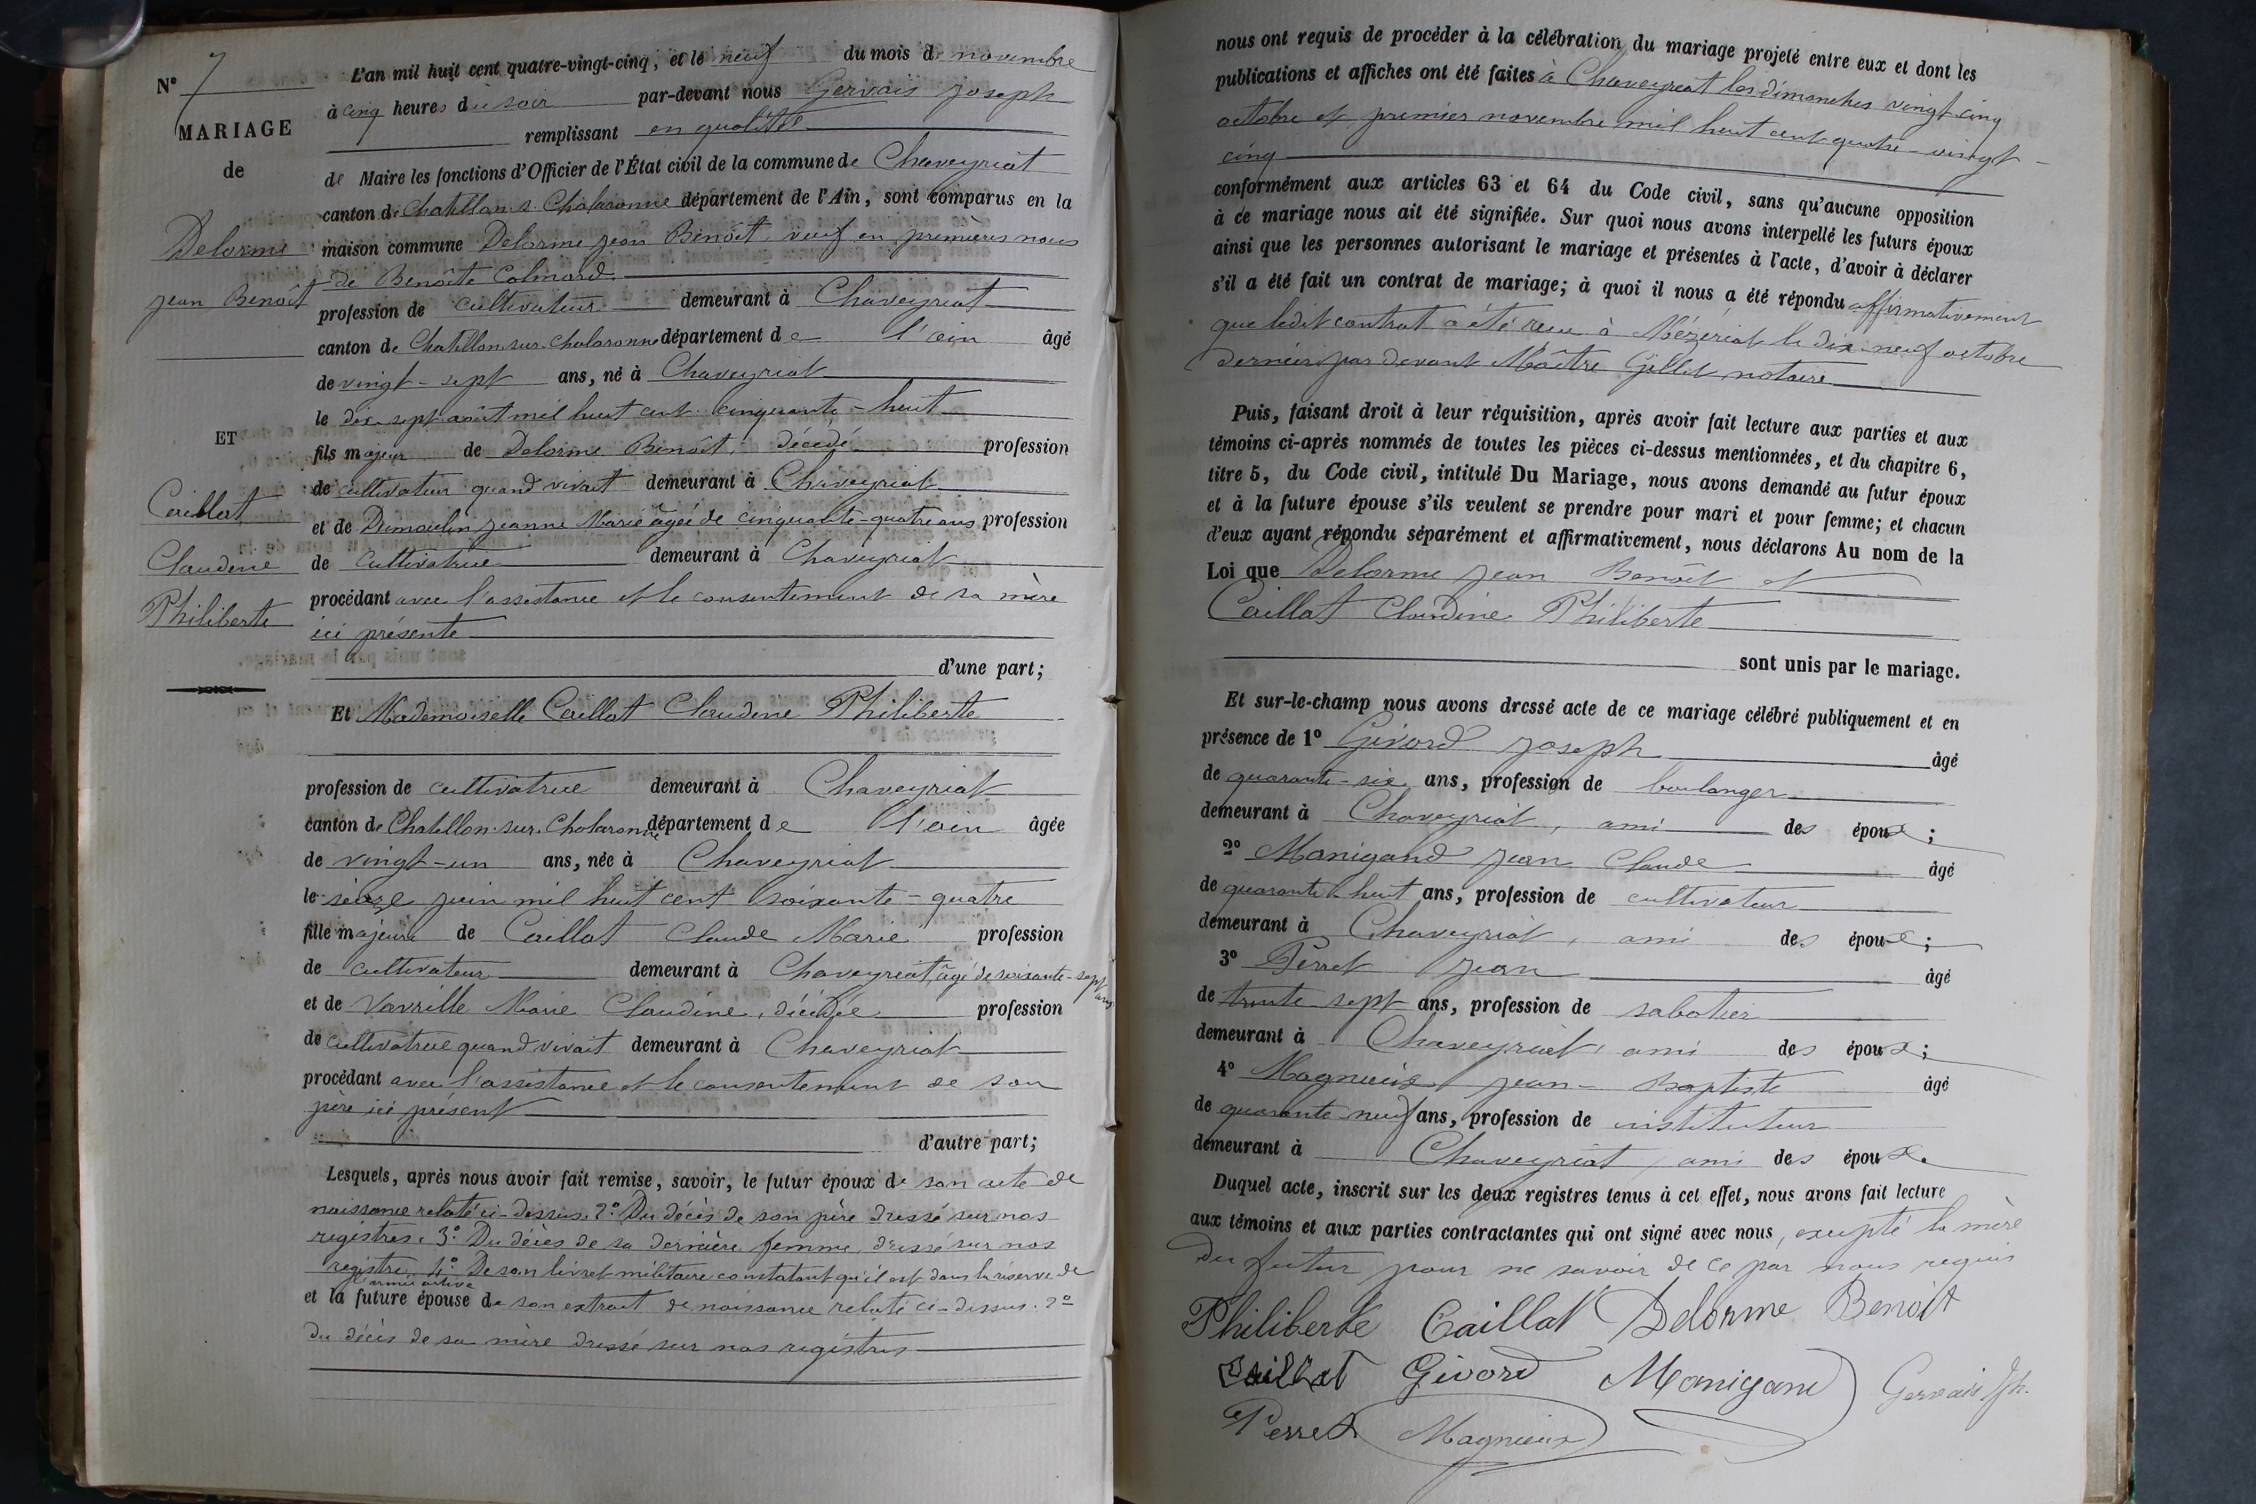 N° 7
MARIAGE
de
Delorme
Jean Benoît
ET
Caillat
Claudine
Philiberte
L'an mil huit cent quatre-vingt-cinq, et le neuf du mois de novembre
à cinq heures du soir par-devant nous Gervais Joseph
remplissant en qualité
de Maire les fonctions d'Officier de l'État civil de la commune de Chaveyriat
canton de Chatillon s. Chalaronne département de l'Ain, sont comparus en la
maison commune Delorme Jean Benoît, veuf en premières noces
de Benoîte Colmard
profession de cultivateur demeurant à Chaveyriat
canton de Chatillon-sur-Chalaronne département de l'ain âgé
de vingt-sept ans, né à Chaveyriat
le dix sept août mil huit cent cinquante-huit
fils majeur de Delorme Benoît, décédé profession
de cultivateur quand vivait demeurant à Chaveyriat
et de Dumoulin Jeanne Marie âgée de cinquante-quatre ans profession
de cultivatrice demeurant à Chaveyriat
procédant avec l'assistance et le consentement de sa mère
ici présente
d'une part;
Et Mademoiselle Caillat Claudine Philiberte
profession de cultivatrice demeurant à Chaveyriat
canton de Chatillon-sur-Chalaronne département de l'ain âgée
de vingt-un ans, née à Chaveyriat
le seize juin mil huit cent soixante-quatre
fille majeure de Caillat Claude Marie profession
de cultivateur demeurant à Chaveyriat, âgé de soixante-sept ans
et de Vavrille Marie Claudine, décédée profession
de cultivatrice quand vivait demeurant à Chaveyriat
procédant avec l'assistance et le consentement de son
père ici présent
d'autre part;
Lesquels, après nous avoir fait remise, savoir, le futur époux de son acte de
naissance relaté ci-dessus. 2° Du décès de son père dressé sur nos
registres. 3° Du décès de sa dernière femme, dressé sur nos
registres. 4° De son livret militaire constatant qu'il est dans la réserve de
l'armée active
et la future épouse de son extrait de naissance relaté ci-dessus. 2°
Du décès de sa mère dressé sur nos registres
nous ont requis de procéder à la célébration du mariage projeté entre eux et dont les
publications et affiches ont été faites à Chaveyriat les dimanches vingt cinq
octobre et premier novembre mil huit cent quatre-vingt-
cinq
conformément aux articles 63 et 64 du Code civil, sans qu'aucune opposition
à ce mariage nous ait été signifiée. Sur quoi nous avons interpellé les futurs époux
ainsi que les personnes autorisant le mariage et présentes à l'acte, d'avoir à déclarer
s'il a été fait un contrat de mariage; à quoi il nous a été répondu affirmativement
que ledit contrat a été reçu à Mézériat le dix-neuf octobre
dernier par devant Maître Gillet notaire
Puis, faisant droit à leur réquisition, après avoir fait lecture aux parties et aux
témoins ci-après nommés de toutes les pièces ci-dessus mentionnées, et du chapitre 6,
titre 5, du Code civil, intitulé Du Mariage, nous avons demandé au futur époux
et à la future épouse s'ils veulent se prendre pour mari et pour femme; et chacun
d'eux ayant répondu séparément et affirmativement, nous déclarons Au nom de la
Loi que Delorme Jean Benoît et
Caillat Claudine Philiberte
sont unis par le mariage.
Et sur-le-champ nous avons dressé acte de ce mariage célébré publiquement et en
présence de 1° Givord Joseph âgé
de quarante-six ans, profession de boulanger
demeurant à Chaveyriat, ami des époux;
2° Manigand Jean Claude âgé
de quarante huit ans, profession de cultivateur
demeurant à Chaveyriat, ami des époux;
3° Perret Jean âgé
de trente sept ans, profession de sabotier
demeurant à Chaveyriat, ami des époux;
4° Magnieux Jean-Baptiste âgé
de quarante-neuf ans, profession de instituteur
demeurant à Chaveyriat, ami des époux.
Duquel acte, inscrit sur les deux registres tenus à cet effet, nous avons fait lecture
aux témoins et aux parties contractantes qui ont signé avec nous, excepté la mère
du futur pour ne savoir de ce par nous requis
Philiberte Caillat Delorme Benoît
Caillat Givord Manigand Gervais Jh.
Perret Magnieux